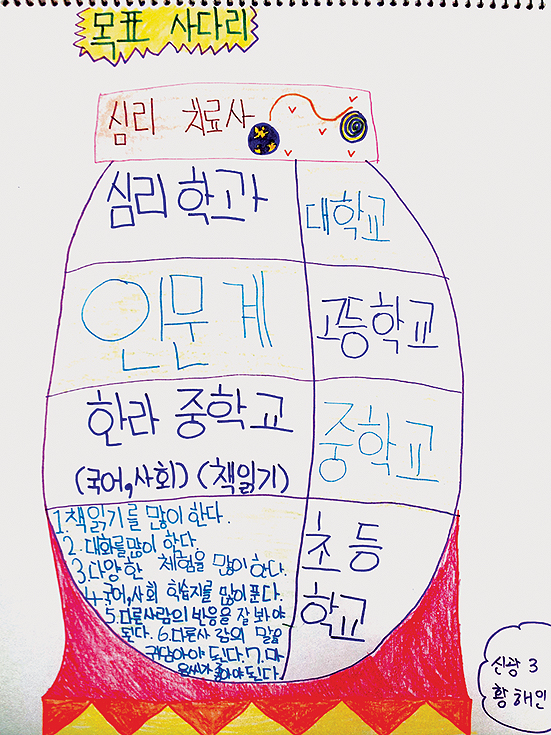 목표 사다리
심리 치료사
심리학과
대학교
인문계
고등학교
한라 중학교
(국어,사회) (책읽기)
중학교
1.책읽기를 많이 한다.
2.대화를많이 한다.
3.다양한 체험을 많이한다.
4.국어,사회 학습지를 많이푼다.
5.다른사람의 반응을 잘 봐야
된다. 6.다른사람의 말을
귀담아야 된다.7.마
음씨가좋아야된다.
초등
학교
신상 3
황해인